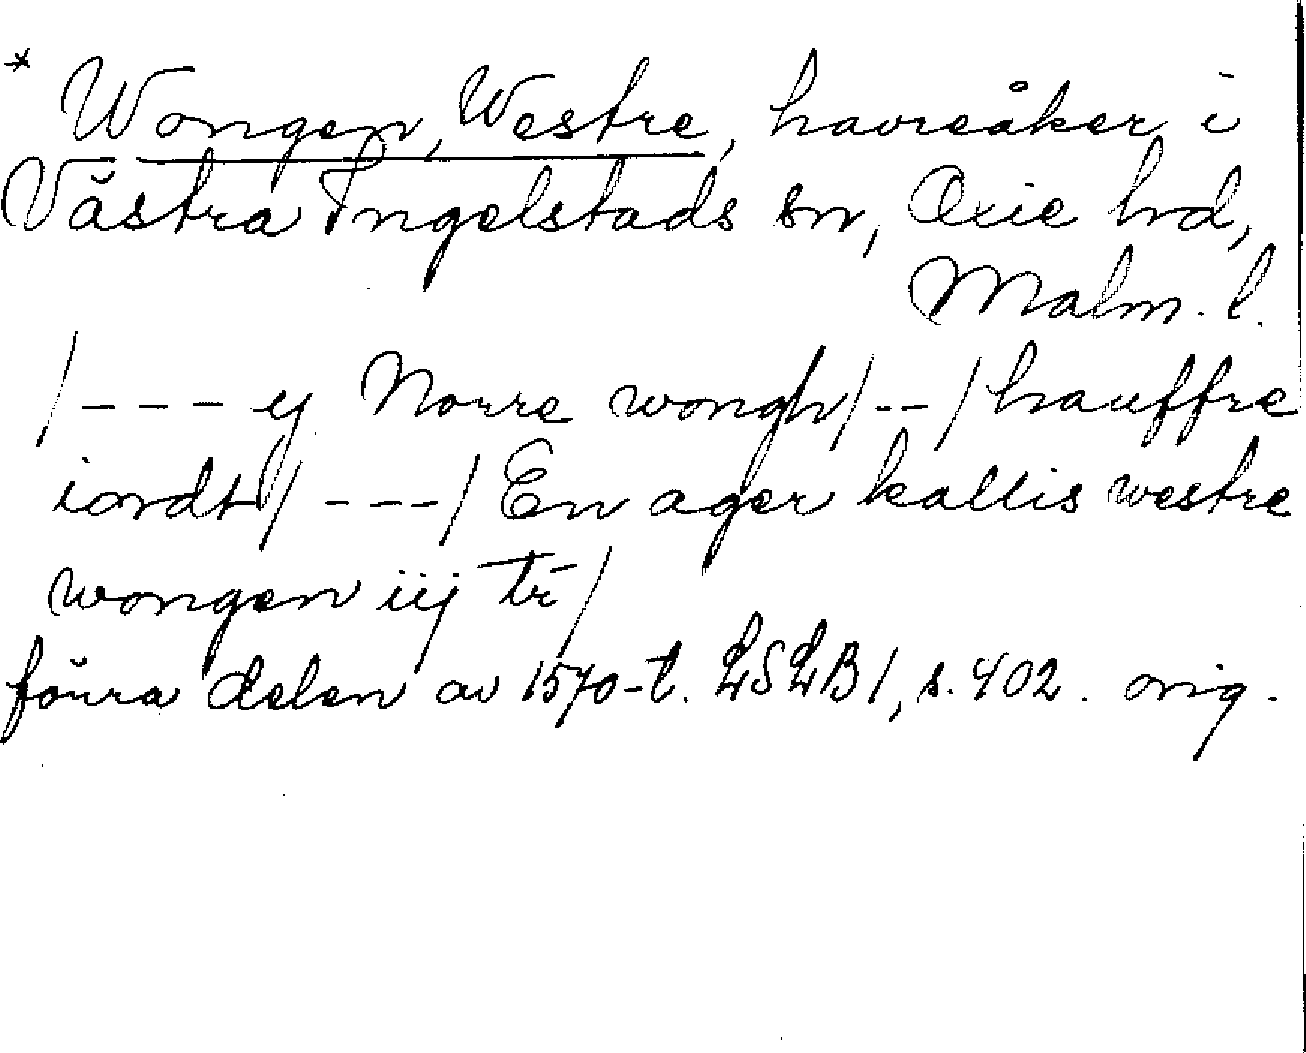 * Wongen, Westre, havreåker i
Västra Ingelstads sn, Oxie hd,
Malm. l.
/--- ej Norre wongh/--/ hauffre
iordt/ ---/ En ager kallis westre
wongen iij tr/
förra delen av 1570-t. LSLB 1, s. 402. orig.